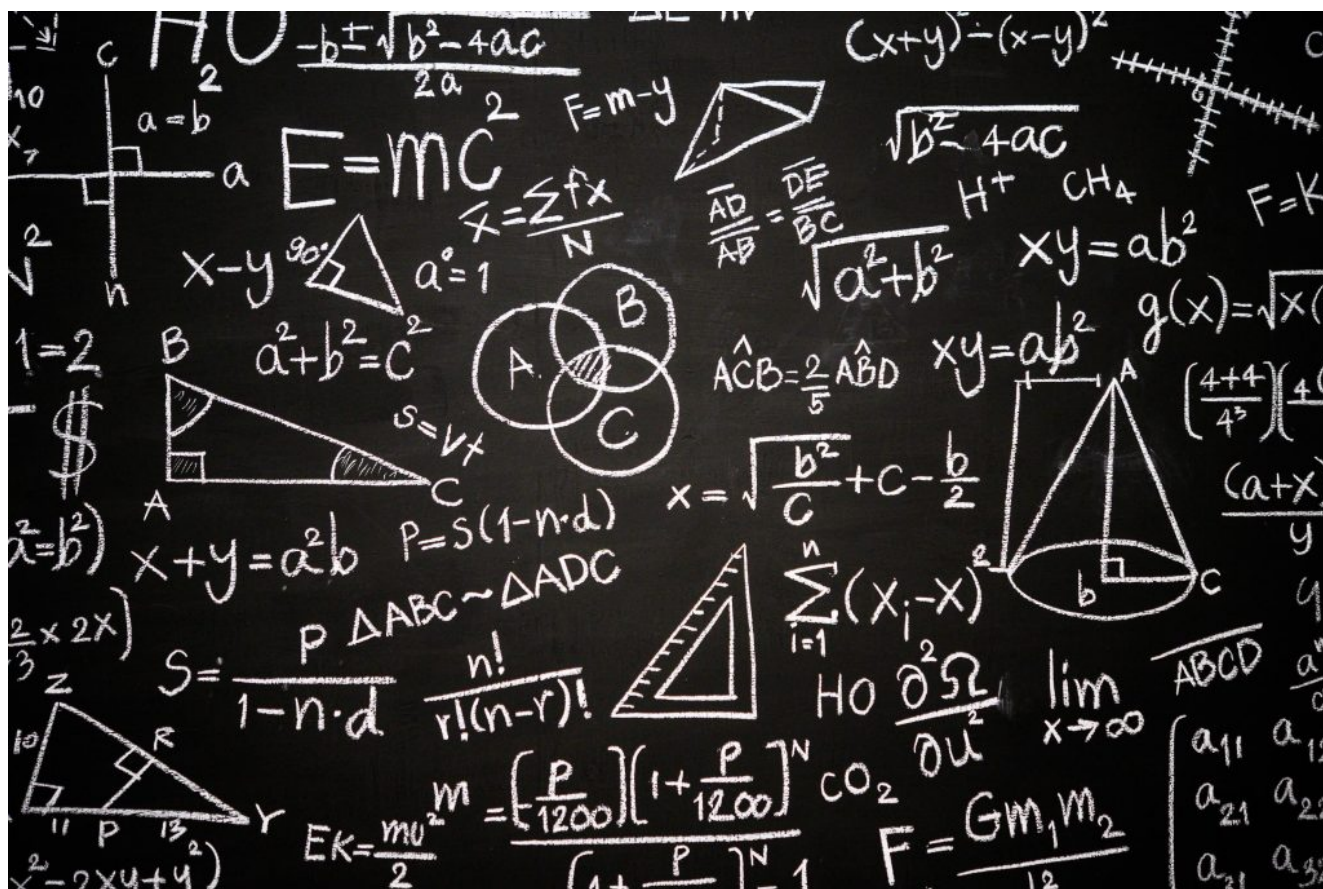 H₂O
-b±√(b²-4ac)
2a
(x+y)²-(x-y)²
C
a=b
a
n
10
E=mc²
F=m-y
√(b²-4ac)
H+
CH₄
F=K
x̄=∑fx
N
AD/AB=DE/BC
x-y
90°
a°=1
√(a²+b²)
xy=ab²
g(x)=√x(
1=2
a²+b²=c²
A
B
C
AĈB=2/5 AB̂D
xy=ab²
(4+4/4³)(4
B
A
C
$
s=vx
x=√(b²/c)+c-b/2
A
b
C
2
(a+x)
y
a²=b²)
x+y=a²b
P=S(1-n·d)
△ABC~△ADC
n
∑(Xᵢ-X)²
i=1
2/3 x 2x)
S=P/(1-n·d)
n!
r!(n-r)!
HO
∂²Ω
∂u²
lim
x→∞
ABCD
Z
10
R
11
P
13
Y
EK=mv²/2
m
=[P/1200][1+P/1200]ᴺ
[1+P ]ᴺ-1
CO₂
F=Gm₁m₂
a₁₁ a₁₂
a₂₁ a₂₂
a₃₁ a₃
x²-2xy+y²)